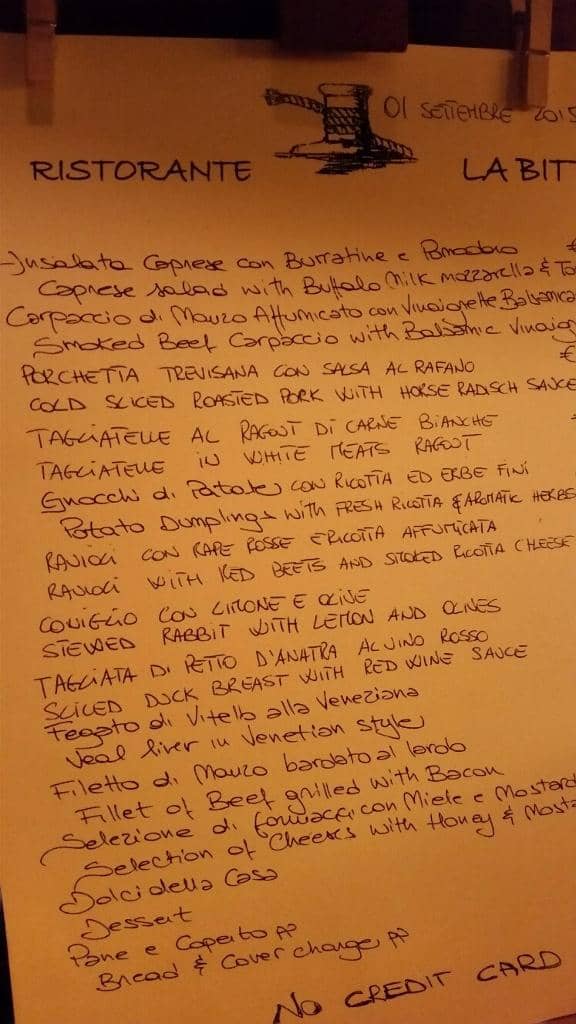 01 SETTEMBRE 2015
RISTORANTE LA BIT
Insalata Caprese con Burratine e Pomodoro €
Caprese salad with Buffalo Milk mozzarella & To
Carpaccio di Manzo Affumicato con Vinaigrette Balsamica
Smoked Beef Carpaccio with Balsamic Vinaig
PORCHETTA TREVISANA CON SALSA AL RAFANO €
COLD SLICED ROASTED PORK WITH HORSE RADISCH SAUCE
TAGLIATELLE AL RAGOUT DI CARNE BIANCHE
TAGLIATELLE IN WHITE MEATS RAGOUT
Gnocchi di Patate CON RICOTTA ED ERBE FINI
Potato Dumplings with FRESH RICOTTA & AROMATIC HERBS
RAVIOLI CON RAPE ROSSE E RICOTTA AFFUMICATA
RAVIOLI WITH RED BEETS AND SMOKED RICOTTA CHEESE
CONIGLIO CON LIMONE E OLIVE
STEWED RABBIT WITH LEMON AND OLIVES
TAGLIATA DI PETTO D'ANATRA AL VINO ROSSO
SLICED DUCK BREAST WITH RED WINE SAUCE
Fegato di Vitello alla Veneziana
Veal liver in Venetian style
Filetto di Manzo bardato al lardo
Fillet of Beef grilled with Bacon
Selezione di formaggi con Miele e Mostard
Selection of Cheeses with Honey & Mosta
Dolci della Casa
Dessert
Pane e Coperto PP
Bread & Cover charge PP
NO CREDIT CARD